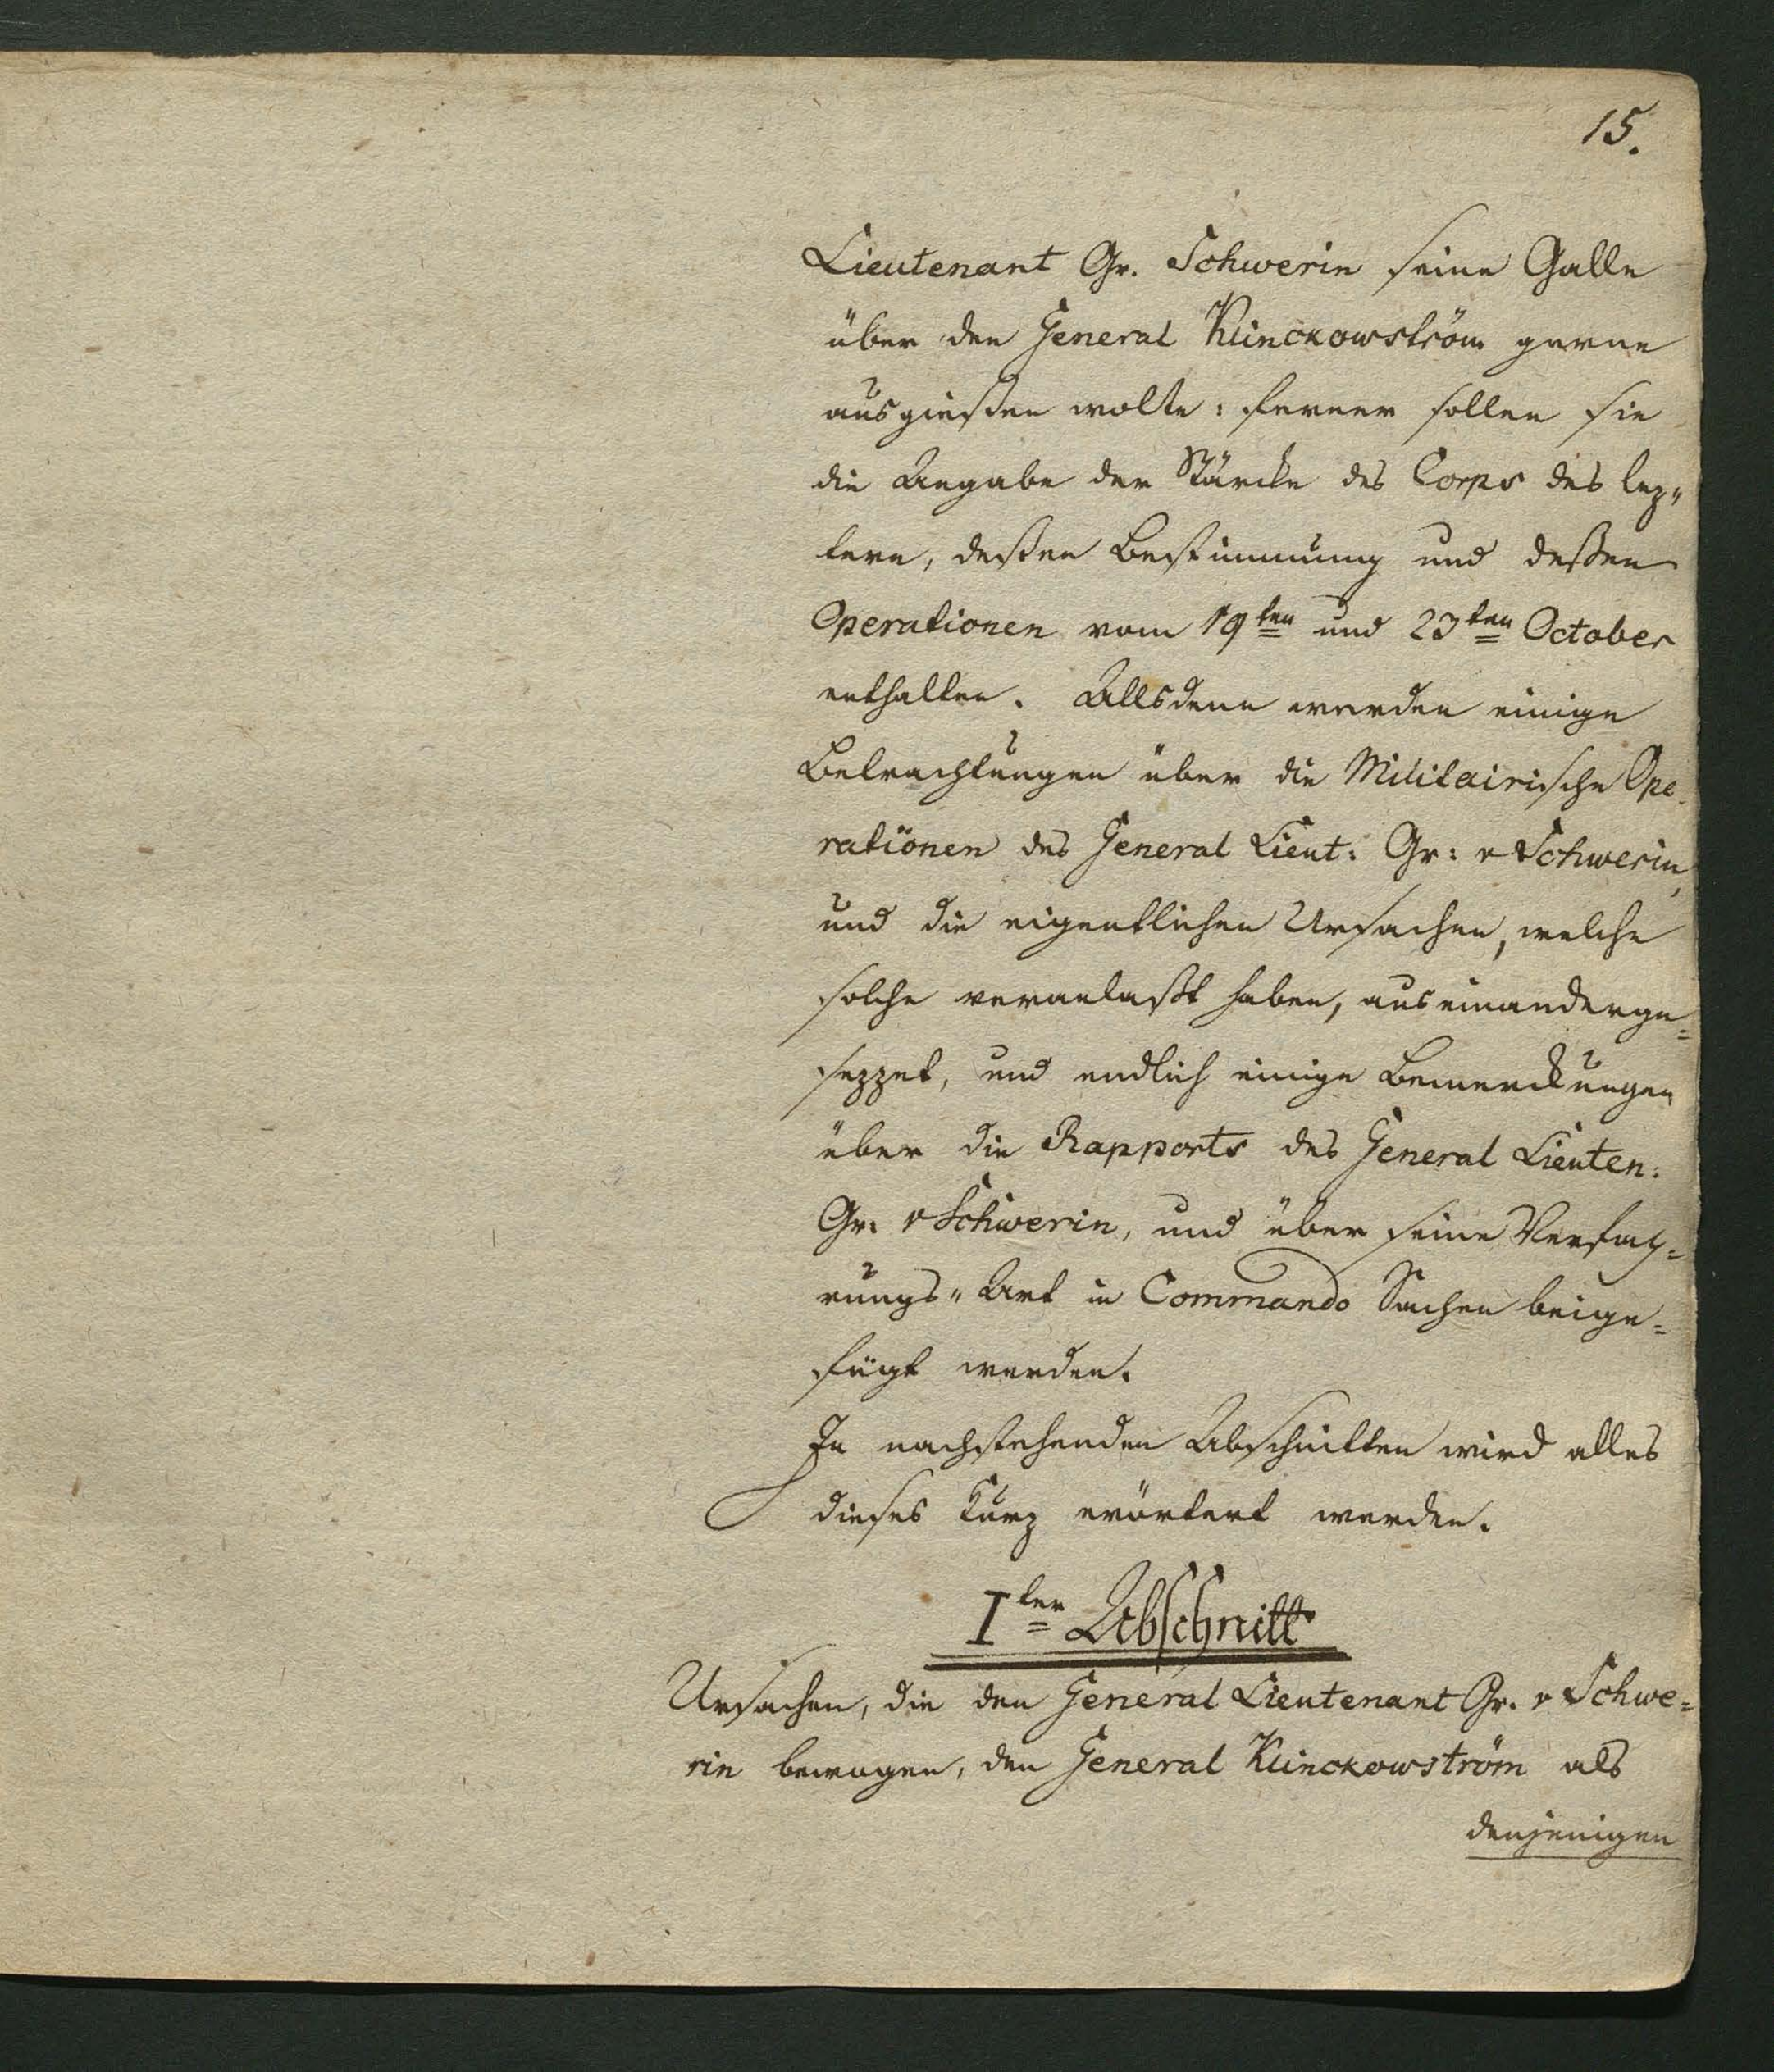 15.
Lieutenant Gr. Schwerin seine Galle
über den General Klinckowström gerne
ausgießen wolte: ferner sollen sie
die Angabe der Stärcke des Corps des lez„
tern, deßen Bestimmung und deßen
Operationen vom 19ten und 23ten October
enthalten. Allsdenn werden einige
Betrachtungen über die Militairische Ope-
rationen des General Lieut: Gr: v Schwerin,
und die eigentlichen Ursachen, welche
solche veranlaßt haben, auseinanderge=
sezzet, und endlich einige Bemerckungen
über die Rapports des General Lieuten:
Gr: v Schwerin, und über seine Verfah=
rungs„Art in Commando Sachen beige=
fügt werden.
In nachstehenden Abschnitten wird alles
dieses kurz erörtert werden.
Iter Abschnitt
Ursachen, die den General Lieutenant Gr. v Schwe=
rin bewogen, den General Klinckowström als
denjenigen